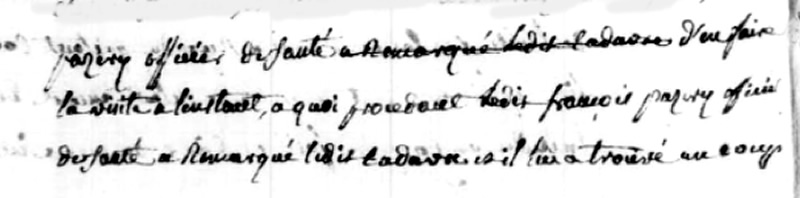 pazery officier de santé a Remarqué ledit cadavre d'en faire
la visite a l'instant, a quoi procedant ledit françois pazery officier
de santé a Remarqué ledit cadavre et il lui a trouvé un coup